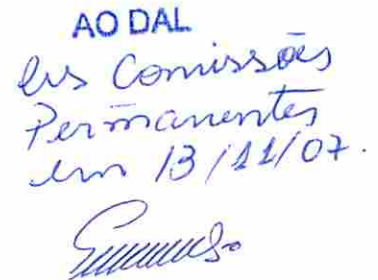 AO DAL
às Comissões
Permanentes
em 13/11/07.